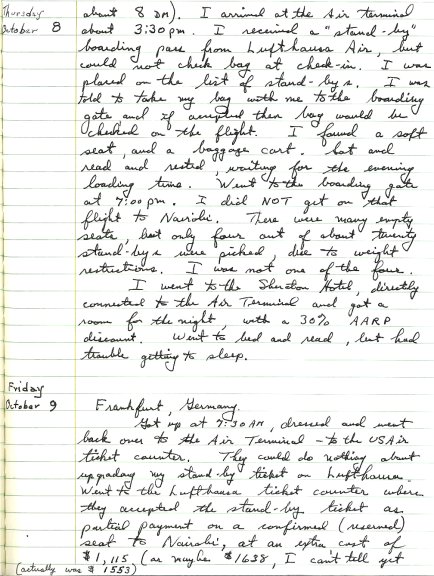 Thursday
October 8
about 8 DM). I arrived at the Air terminal
about 3:30pm. I received a "stand-by"
boarding pass from Lufthansa Air, but
could not check bag at check-in. I was
placed on the list of stand-bys. I was
told to take my bag with me to the boarding
gate and if accepted then bag would be
checked on the flight. I found a soft
seat, and a baggage cart. Sat and
read and rested, waiting for the evening
loading time. Went to the boarding gate
at 7:00pm. I did NOT get on that
flight to Nairobi. There were many empty
seats, but only four out of about twenty
stand-bys were picked, due to weight
restrictions. I was not one of the four.
I went to the Sheraton Hotel, directly
connected to the Air Terminal and got a
room for the night, with a 30% AARP
discount. Went to bed and read, but had
trouble getting to sleep.
Friday
October 9
Frankfurt, Germany.
Got up at 7:30 AM, dressed and went
back over to the Air Terminal - to the USAir
ticket counter. They could do nothing about
upgrading my stand-by ticket on Lufthansa.
Went to the Lufthansa ticket counter where
they accepted the stand-by ticket as
partial payment on a confirmed (reserved)
seat to Nairobi, at an extra cost of
$1,115 (or maybe $1638, I can't tell yet
(actually was $1553)